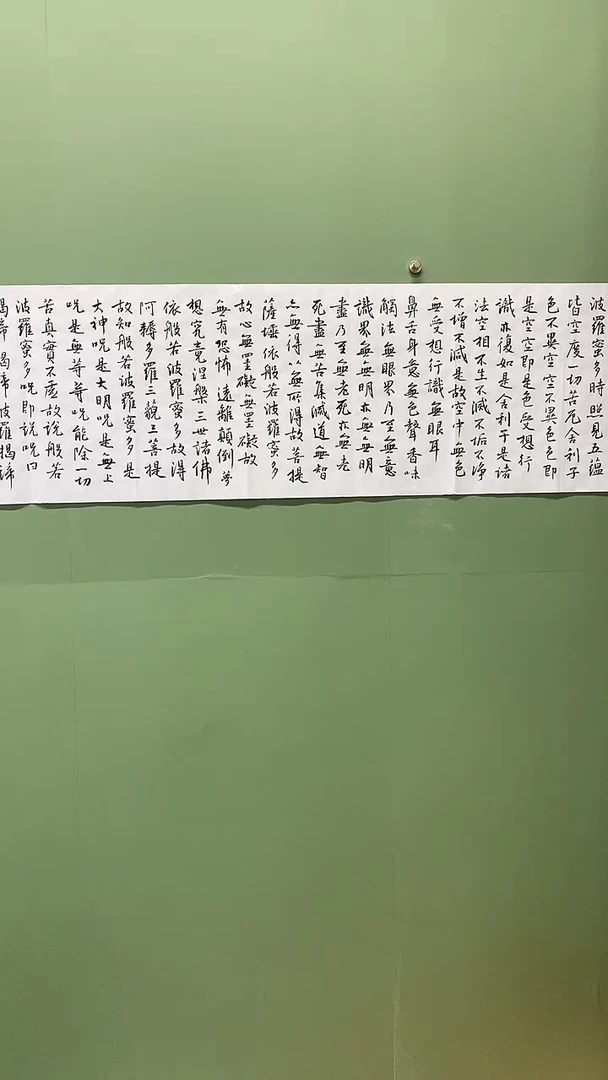 波羅蜜多時照見五蘊
皆空度一切苦厄舍利子
色不異空空不異色色即
是空空即是色受想行
識亦復如是舍利子是諸
法空相不生不滅不垢不净
不增不減是故空中無色
無受想行識無眼耳
鼻舌身意無色聲香味
觸法無眼界乃至無意
識界無無明亦無無明
盡乃至無老死亦無老
死盡無苦集滅道無智
亦無得以無所得故菩提
薩埵依般若波羅蜜多
故心無罣礙無罣礙故
無有恐怖遠離顛倒夢
想究竟涅槃三世諸佛
依般若波羅蜜多故得
阿耨多羅三藐三菩提
故知般若波羅蜜多是
大神咒是大明咒是無上
咒是無等等咒能除一切
苦真實不虛故説般若
波羅蜜多咒即説咒曰
揭諦揭諦波羅揭諦